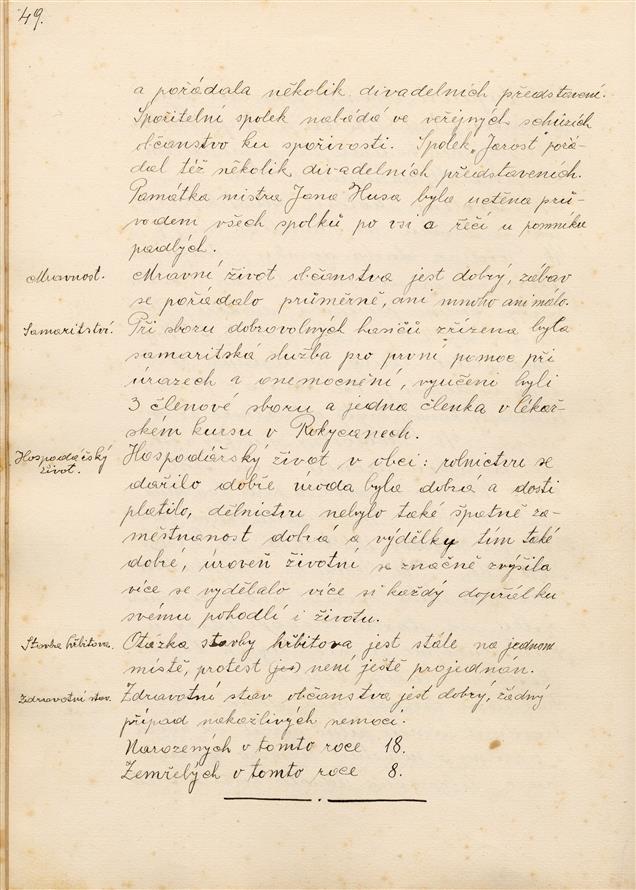 49.
a pořádala několik divadelních představení.
Spořitelní spolek nabádá ve veřejných schůzích
občanstvo ku spořivosti. Spolek „Jarost" pořá-
dal též několik divadelních představeních.
Památka mistra Jana Husa byla uctěna prů-
vodem všech spolků po vsi a řečí u pomníku
padlých.
Mravnost. Mravní život občanstva jest dobrý, zábav
se pořádalo průměrně, ani mnoho ani málo.
Samaritství. Při sboru dobrovolných hasičů zřízena byla
samaritská služba pro první pomoc při
úrazech a onemocnění, vyučeni byli
3 členové sboru a jedna členka v lékař-
ském kursu v Rokycanech.
Hospodářský Hospodářský život v obci: rolnictvu se
život. dařilo dobře uroda byla dobrá a dosti
platilo, dělnictvu nebylo také špatně za-
městnanost dobrá a výdělky tím také
dobré, úroveň životní se značně zvýšila
více se vydělalo více si každý dopřál ku
svému pohodlí i životu.
Stavba hřbitova. Otázka stavby hřbitova jest stále na jednom
místě, protest (jes) není ještě projednán.
Zdravotní stav. Zdravotní stav občanstva jest dobrý, žádný
případ nakažlivých nemocí.
Narozených v tomto roce 18.
Zemřelých v tomto roce 8.